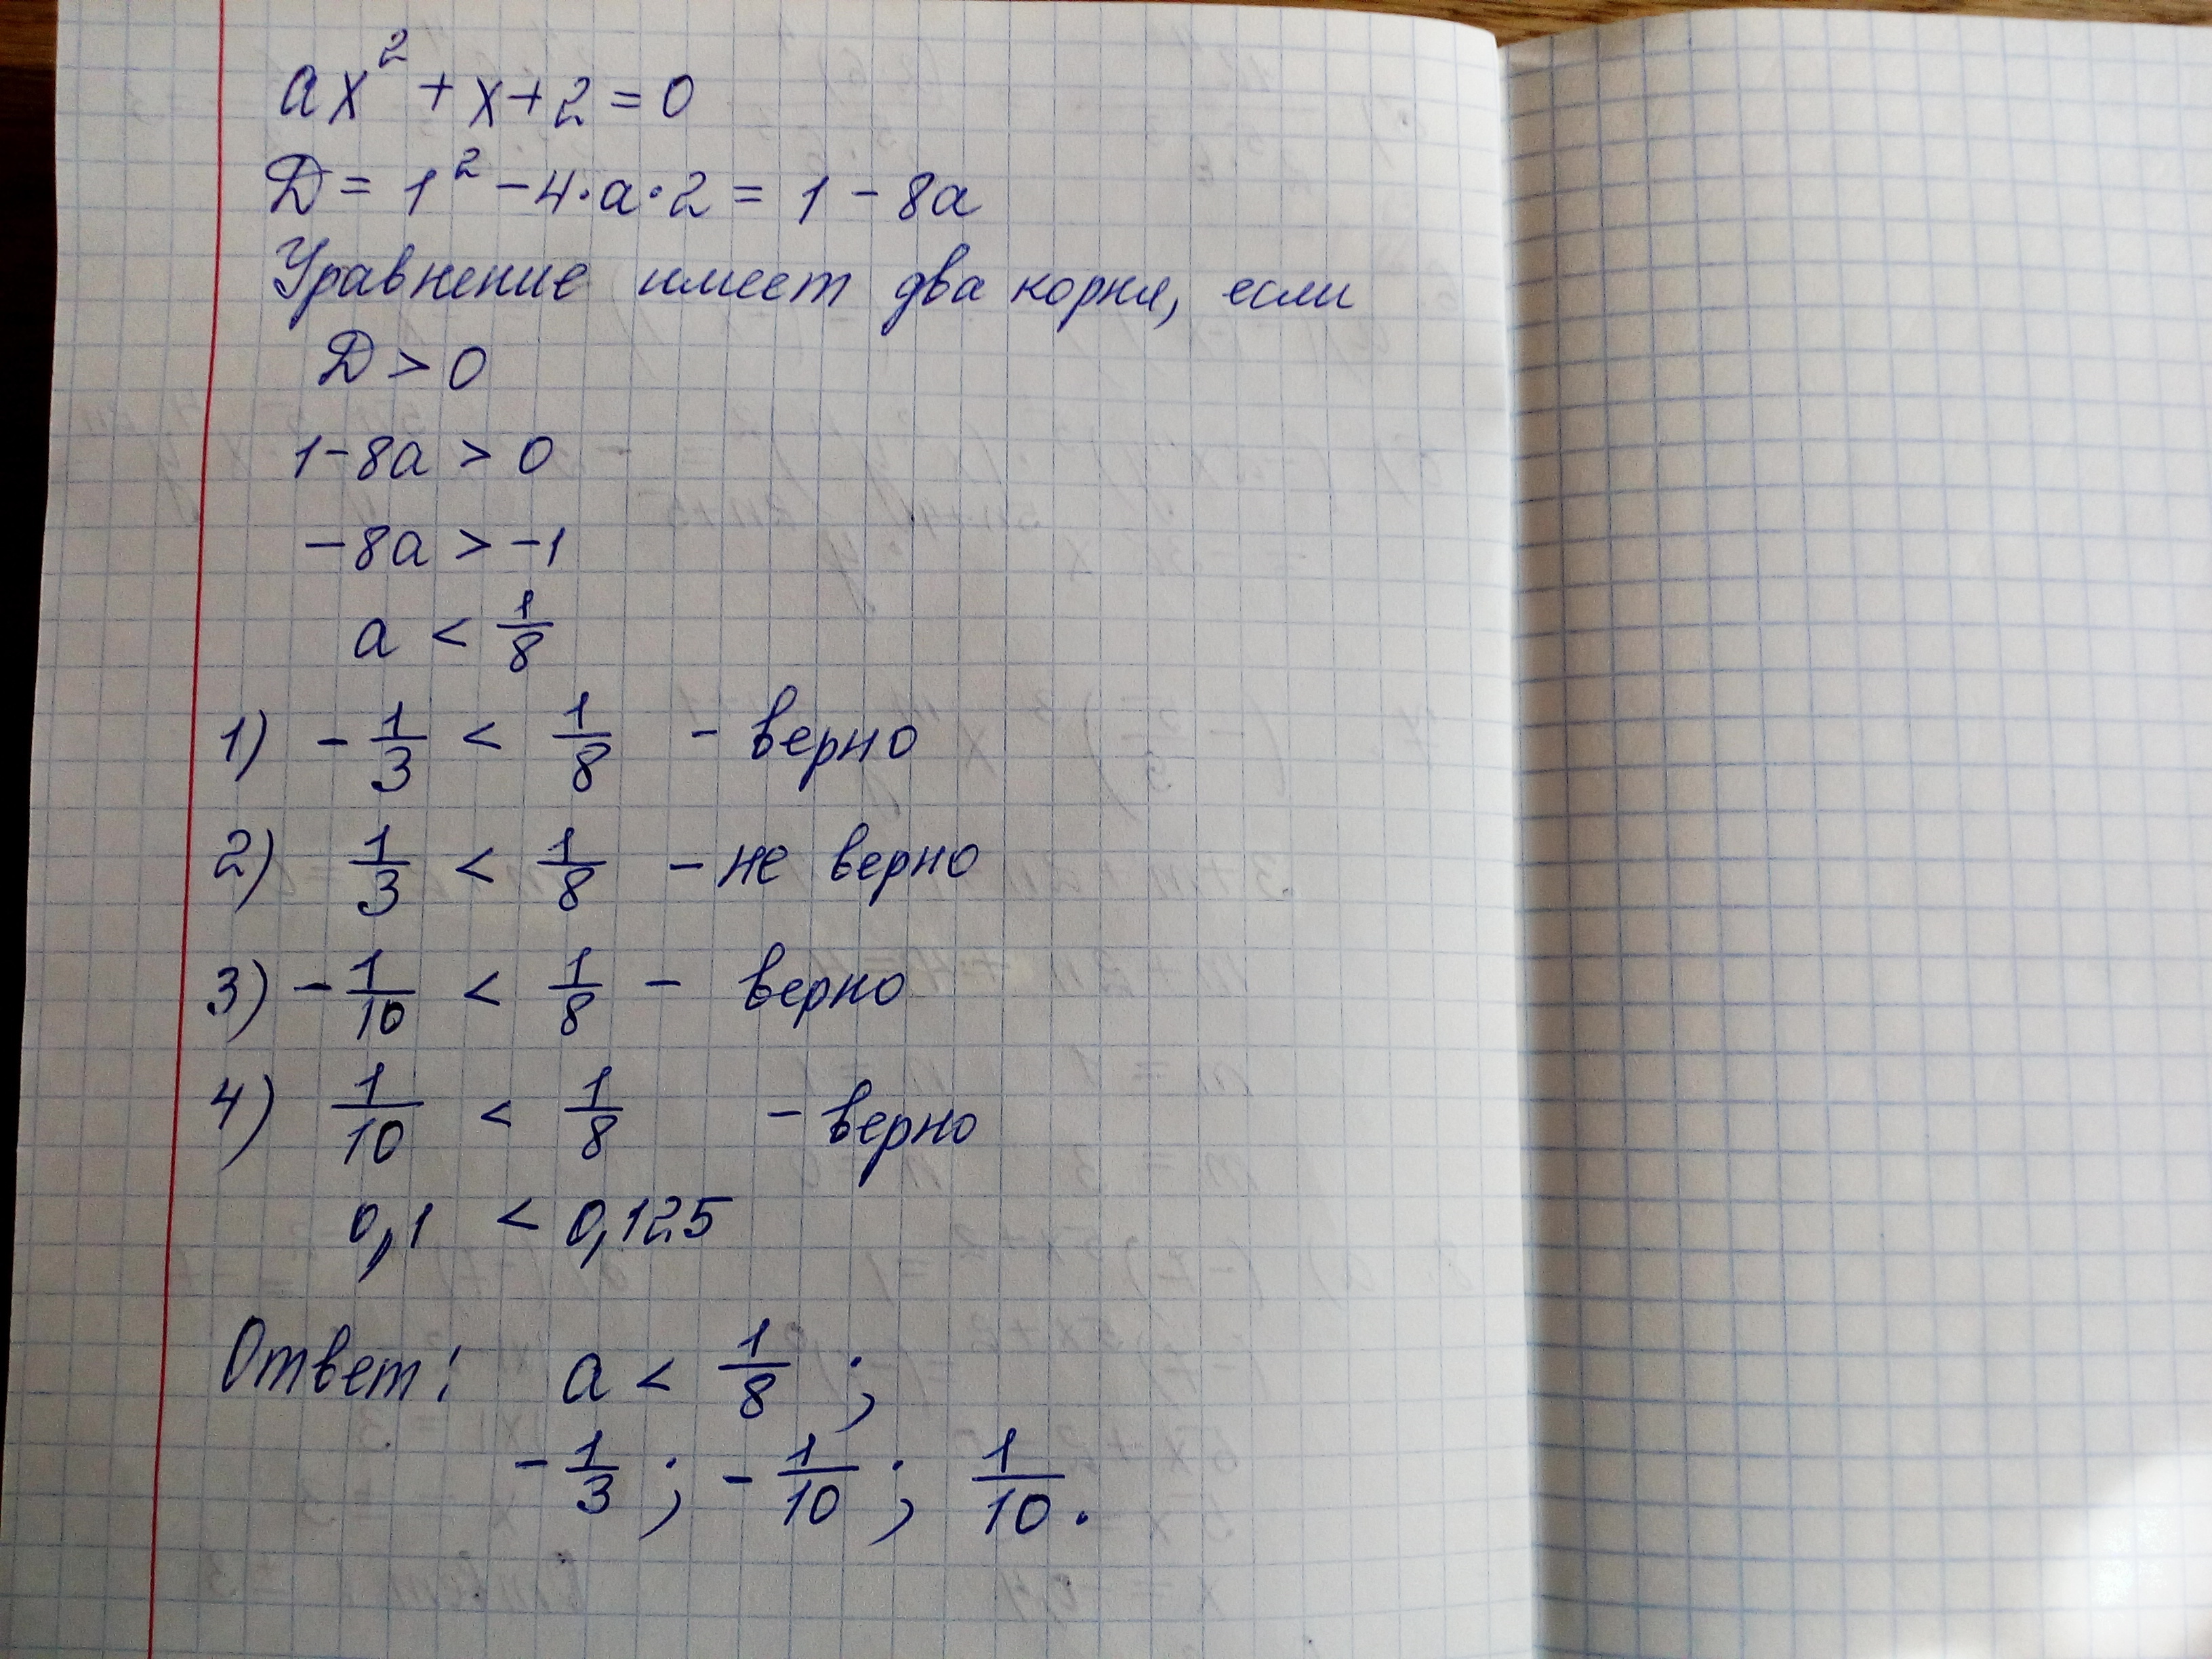 ax² + x + 2 = 0
D = 1² - 4·a·2 = 1 - 8a
Уравнение имеет два корня, если
D > 0
1 - 8a > 0
-8a > -1
a < 1/8
1) -1/3 < 1/8 - верно
2) 1/3 < 1/8 - не верно
3) -1/10 < 1/8 - верно
4) 1/10 < 1/8 - верно
0,1 < 0,125
Ответ: a < 1/8 ;
-1/3 ; -1/10 ; 1/10 .